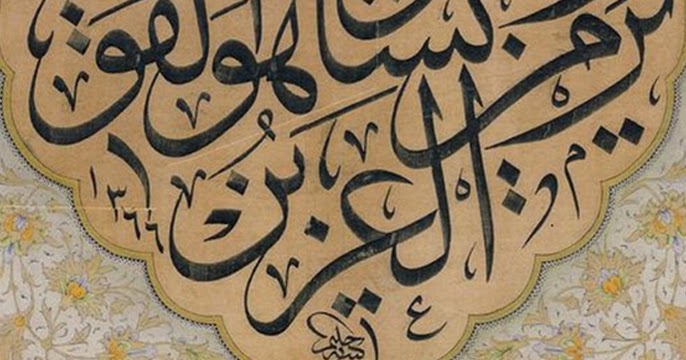 من يشاء وهو القوي
العزيز
١٣٦٦
كتبه حليم